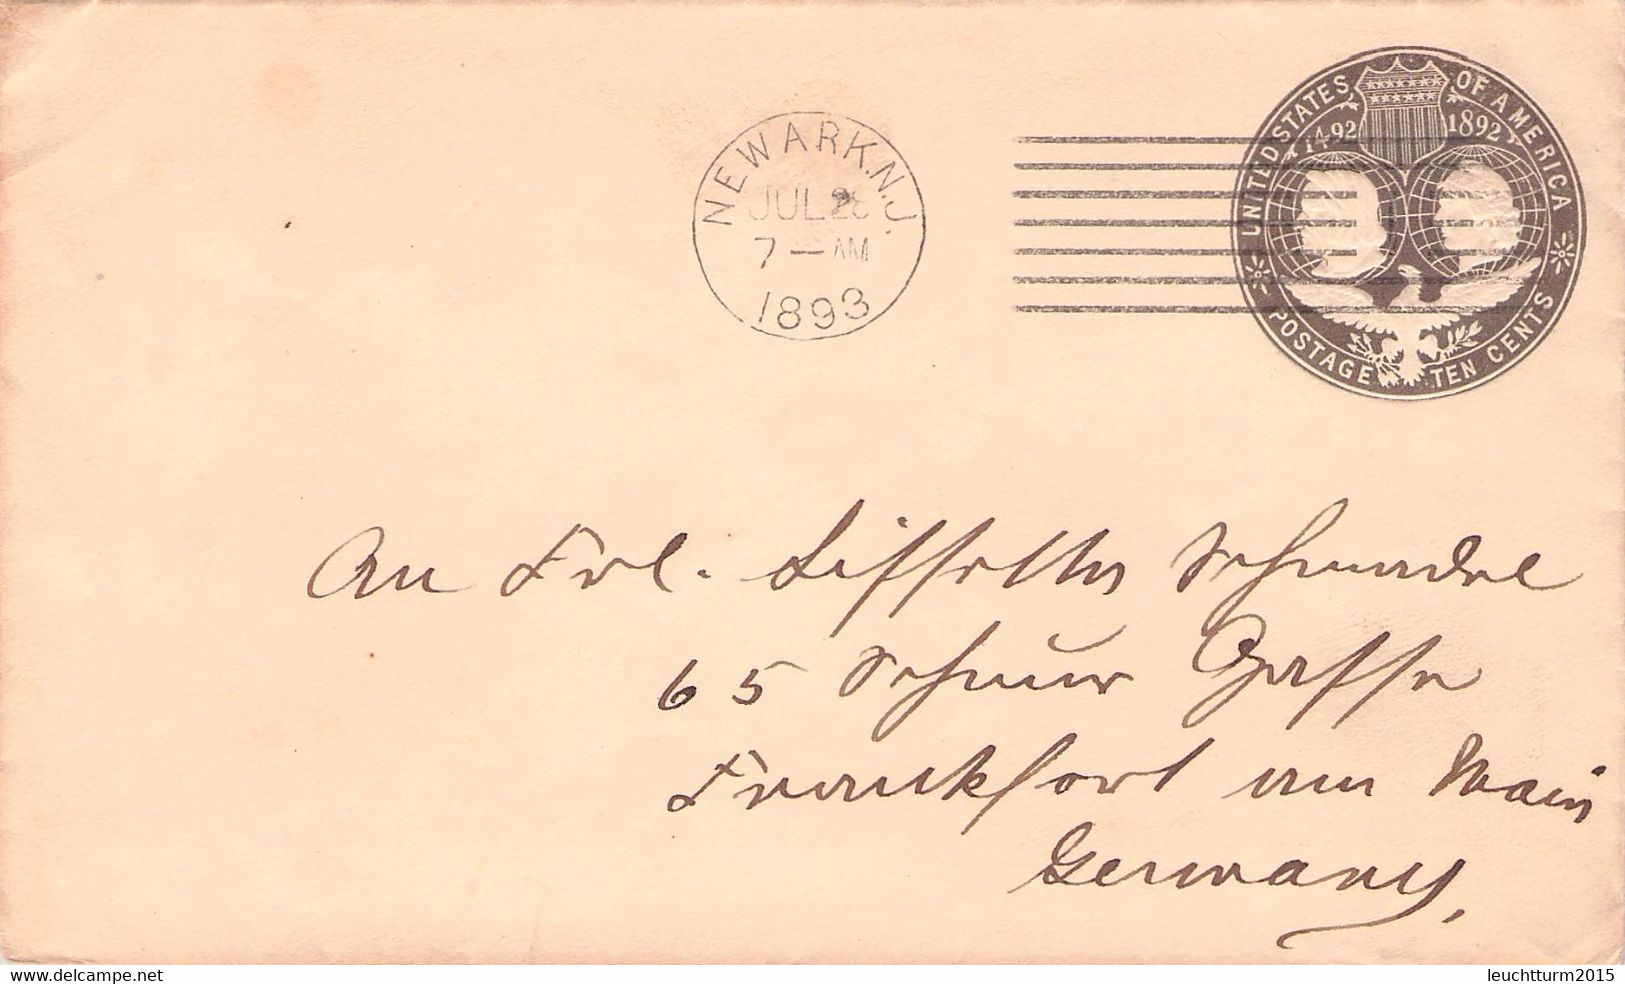 UNITED STATES OF AMERICA
1492 1892
POSTAGE TEN CENTS
NEWARK, N.J.
JUL 28
7 — AM
1893
An Frl. Lissette
65 Schnur Gasse
Frankfort am Main
Germany.
www.delcampe.net
leuchtturm2015